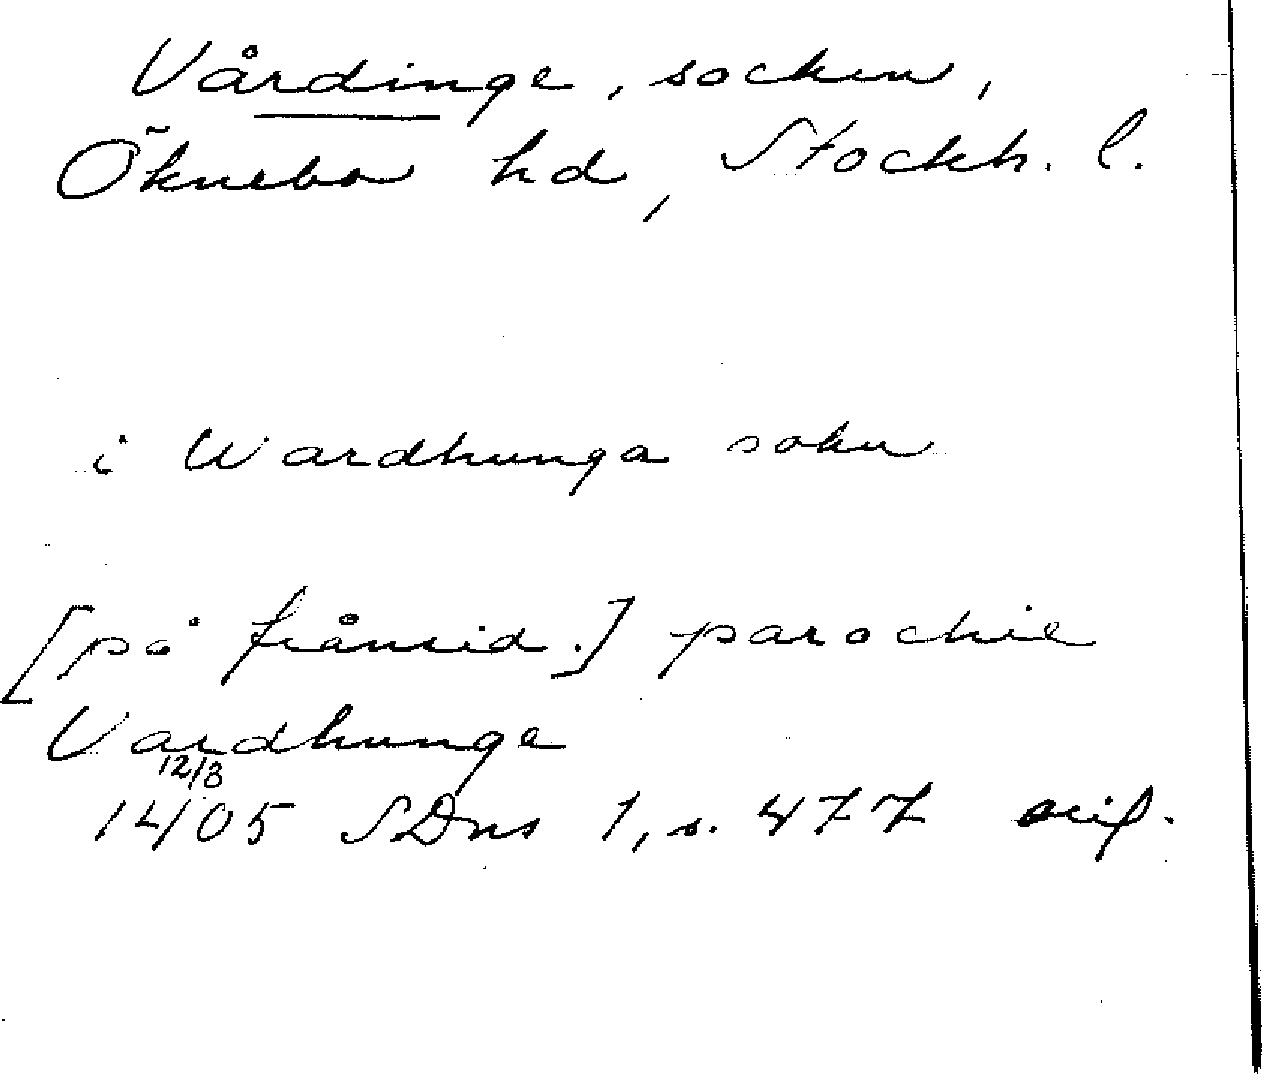 Vårdinge, socken,
Öknebo hd, Stockh. l.
i Wardhunga sokn
[på frånsid.] parochie
Vardhunge
12/3
1405 SDns 1, s. 477 orig.